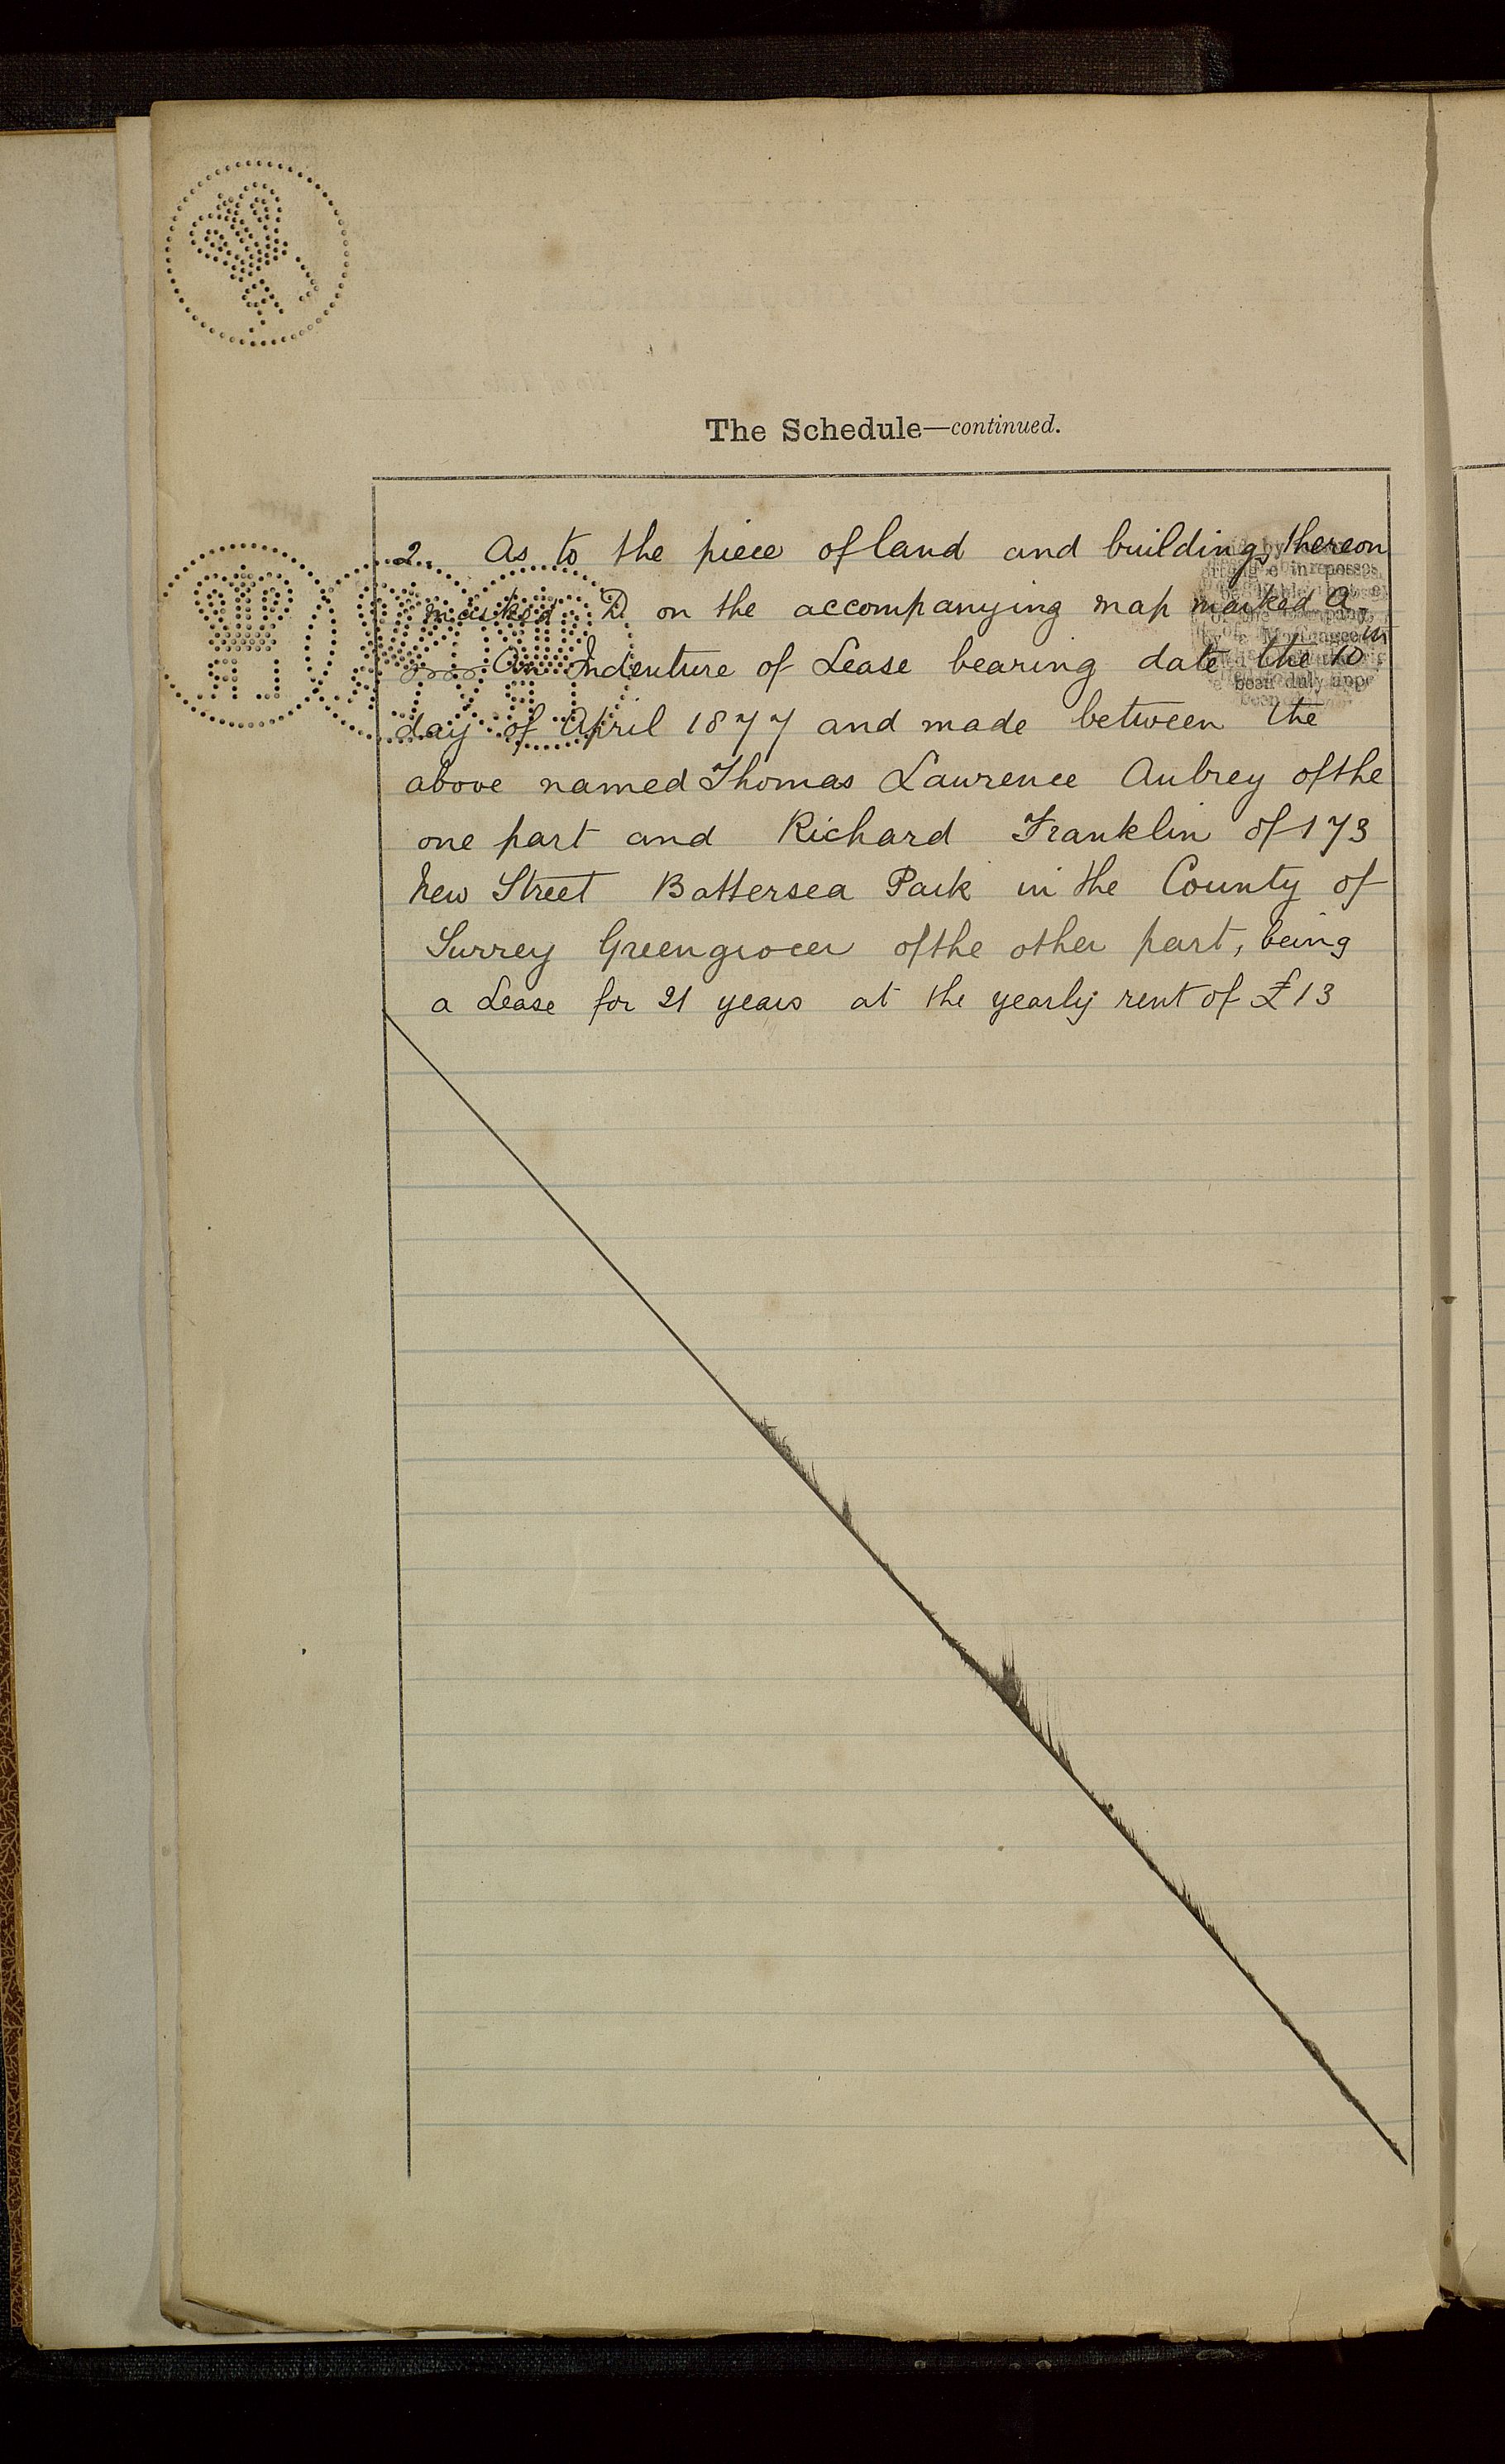 The Schedule—continued.
2. As to the piece of land and buildings thereon
marked D on the accompanying map marked A.
An Indenture of Lease bearing date the 10th
day of April 1877 and made between the
above named Thomas Laurence Aubrey of the
one part and Richard Franklin of 173
New Street Battersea Park in the County of
Surrey Greengrocer of the other part, being
a Lease for 21 years at the yearly rent of £13